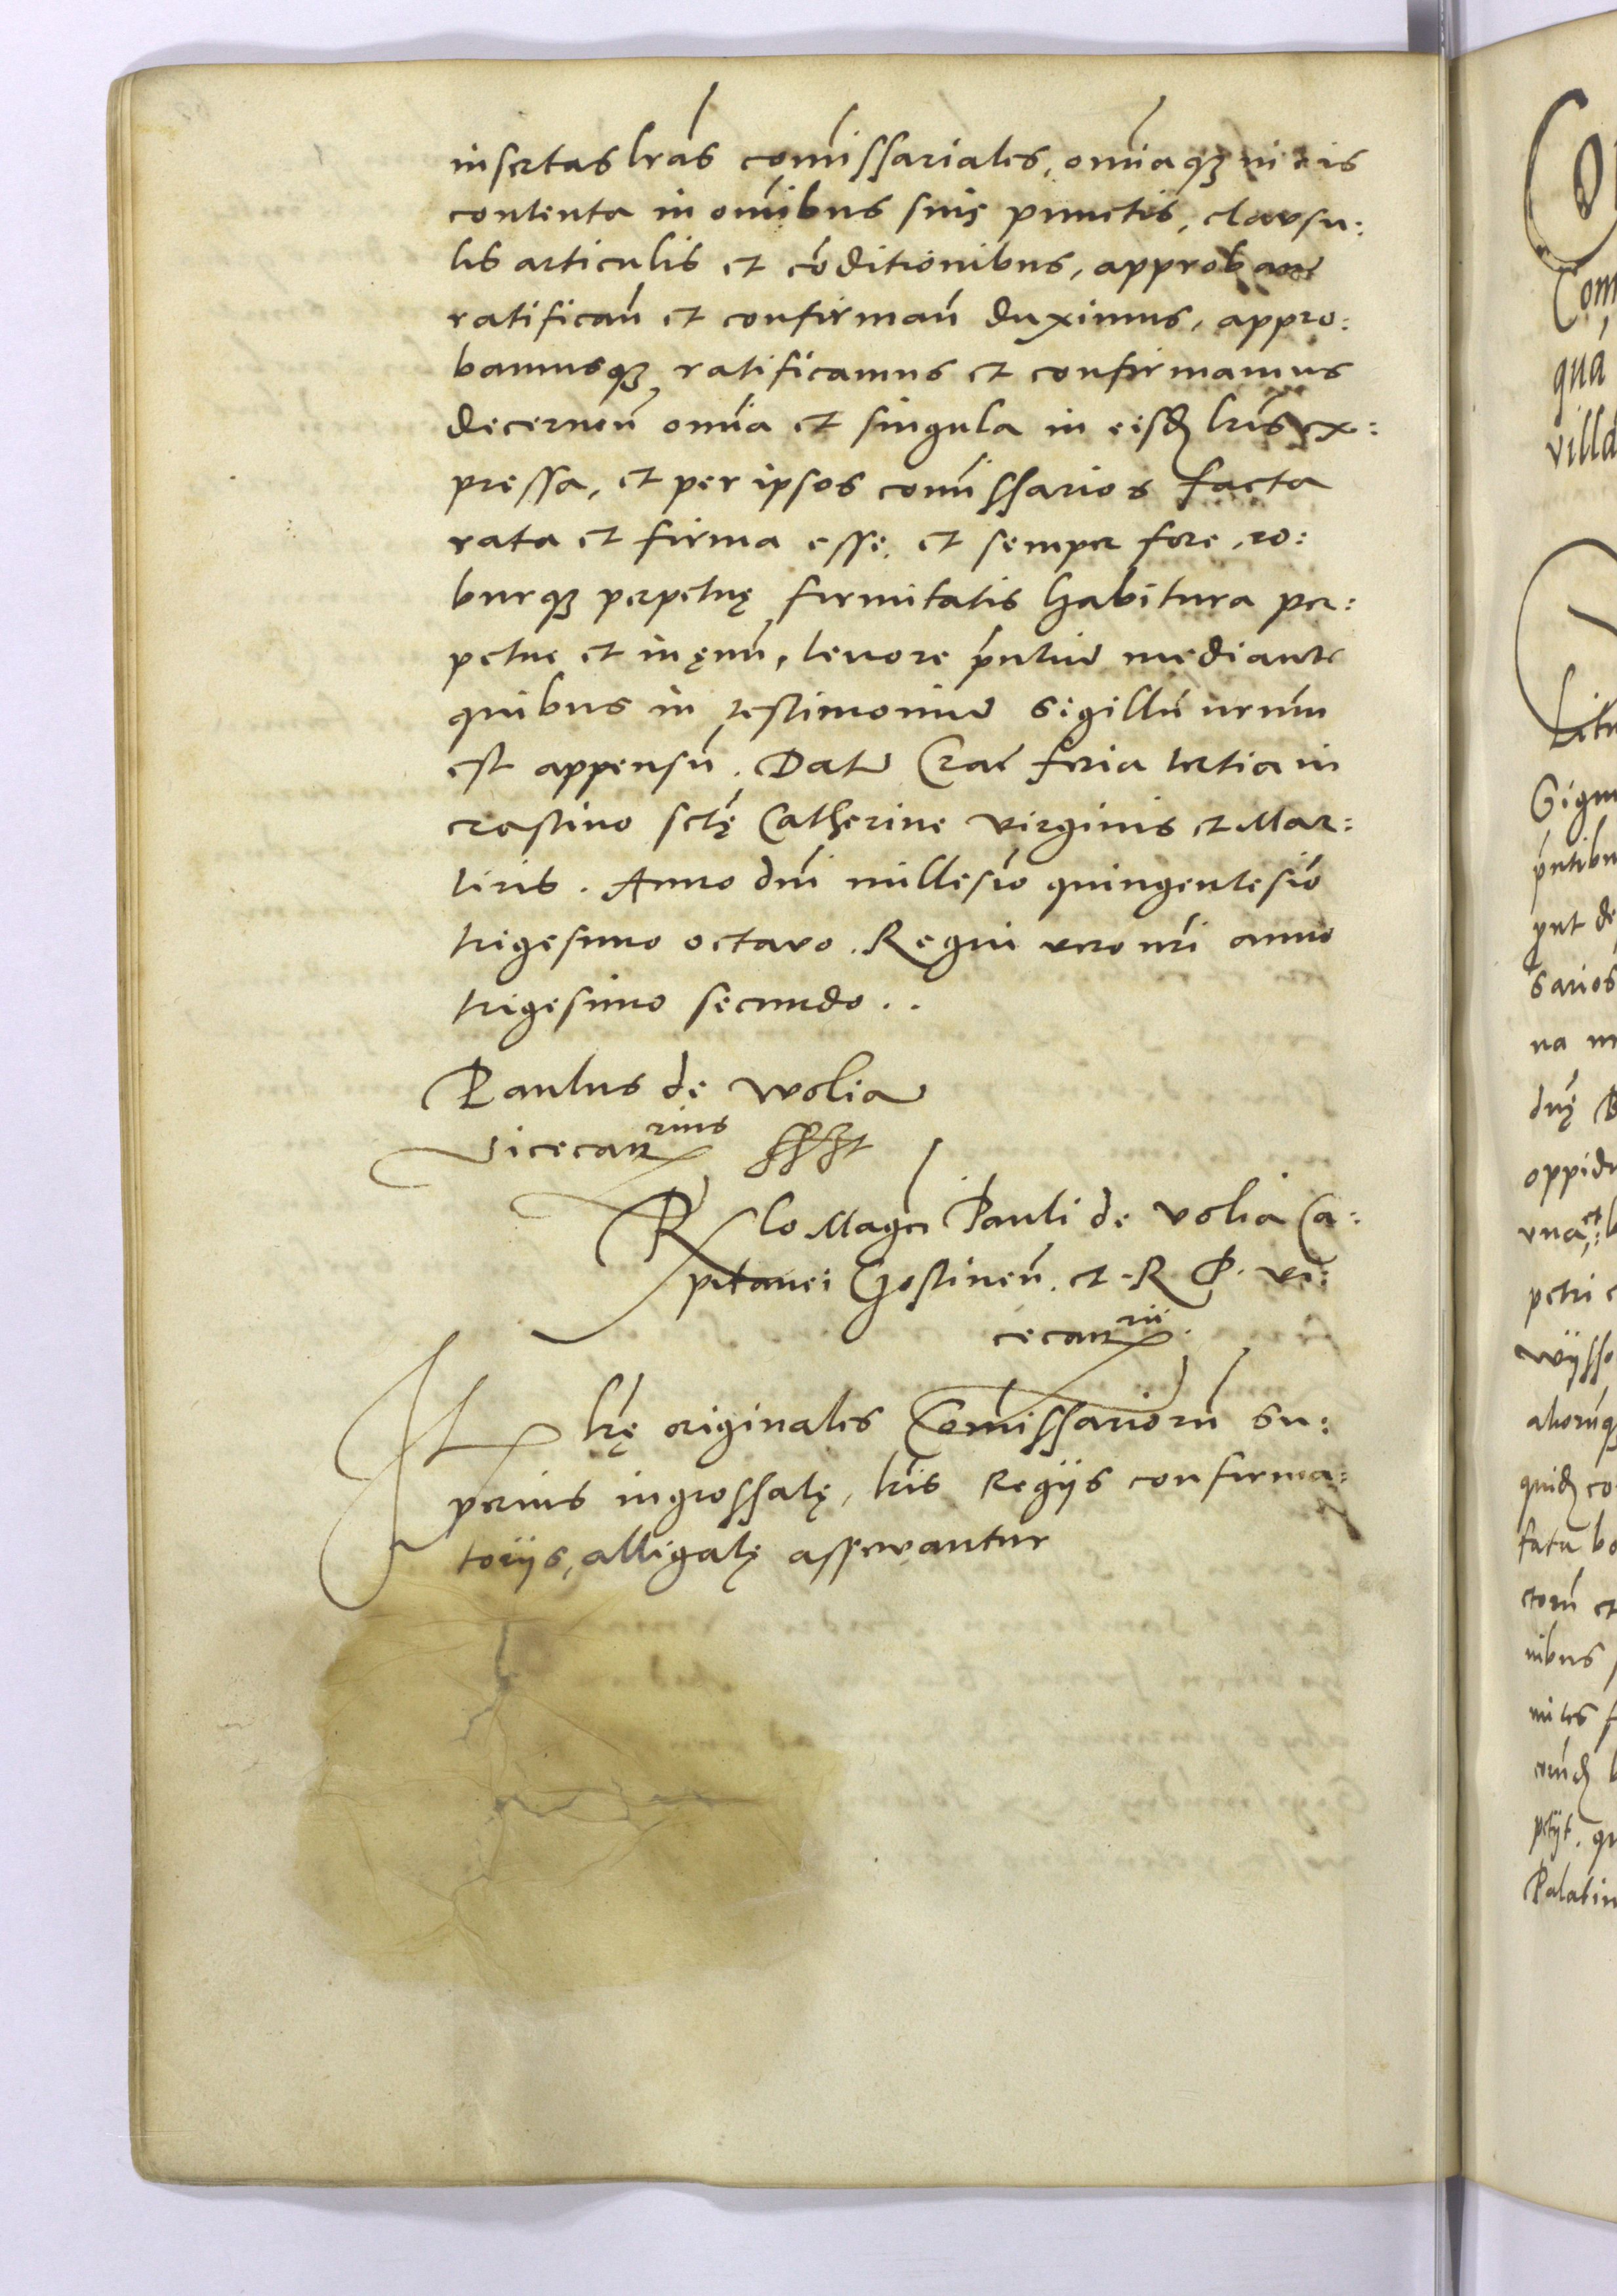 insertas lras comissariales, omiaqꝫ in eis
contenta in omibus suis punctis, clausu:
lis articulis et coditionibus, approban
ratifican et confirman duximus, appro:
bamusqꝫ ratificamus et confirmamus
decernen omia et singula in eisd lris ex:
pressa, et per ipsos comissarios facta
rata et firma esse, et semper fore, ro:
burqꝫ perpetuę firmitatis habitura per:
petue et in ęuu, tenore pntiu mediante
quibus in testimoniu sigillu nrum
est appensu. Datu Crac feria tertia in
crastino sctę Catherine virginis et Mar:
tiris. Anno dni millesio quingentesio
trigesimo octavo. Regni vero nri anno
trigesimo secundo..
Paulus de wolia
vicecanrius sspt
Rlo Magci Pauli de volia Ca:
pitanei Gostinen. et. R P. vi:
cecanrii.
Lrę originales Comissarioru su:
perius ingrossatę, lris Regijs confirma:
torijs, alligatę asservantur
Com
qua
villa
Gigm
pntibu
put de
sarios
na in
dnę
oppidu
una et
petri
wysso
aliorumqꝫ
quid co
fatu bo
ctoru et
nibus
mites
petijt. qu
Palatin